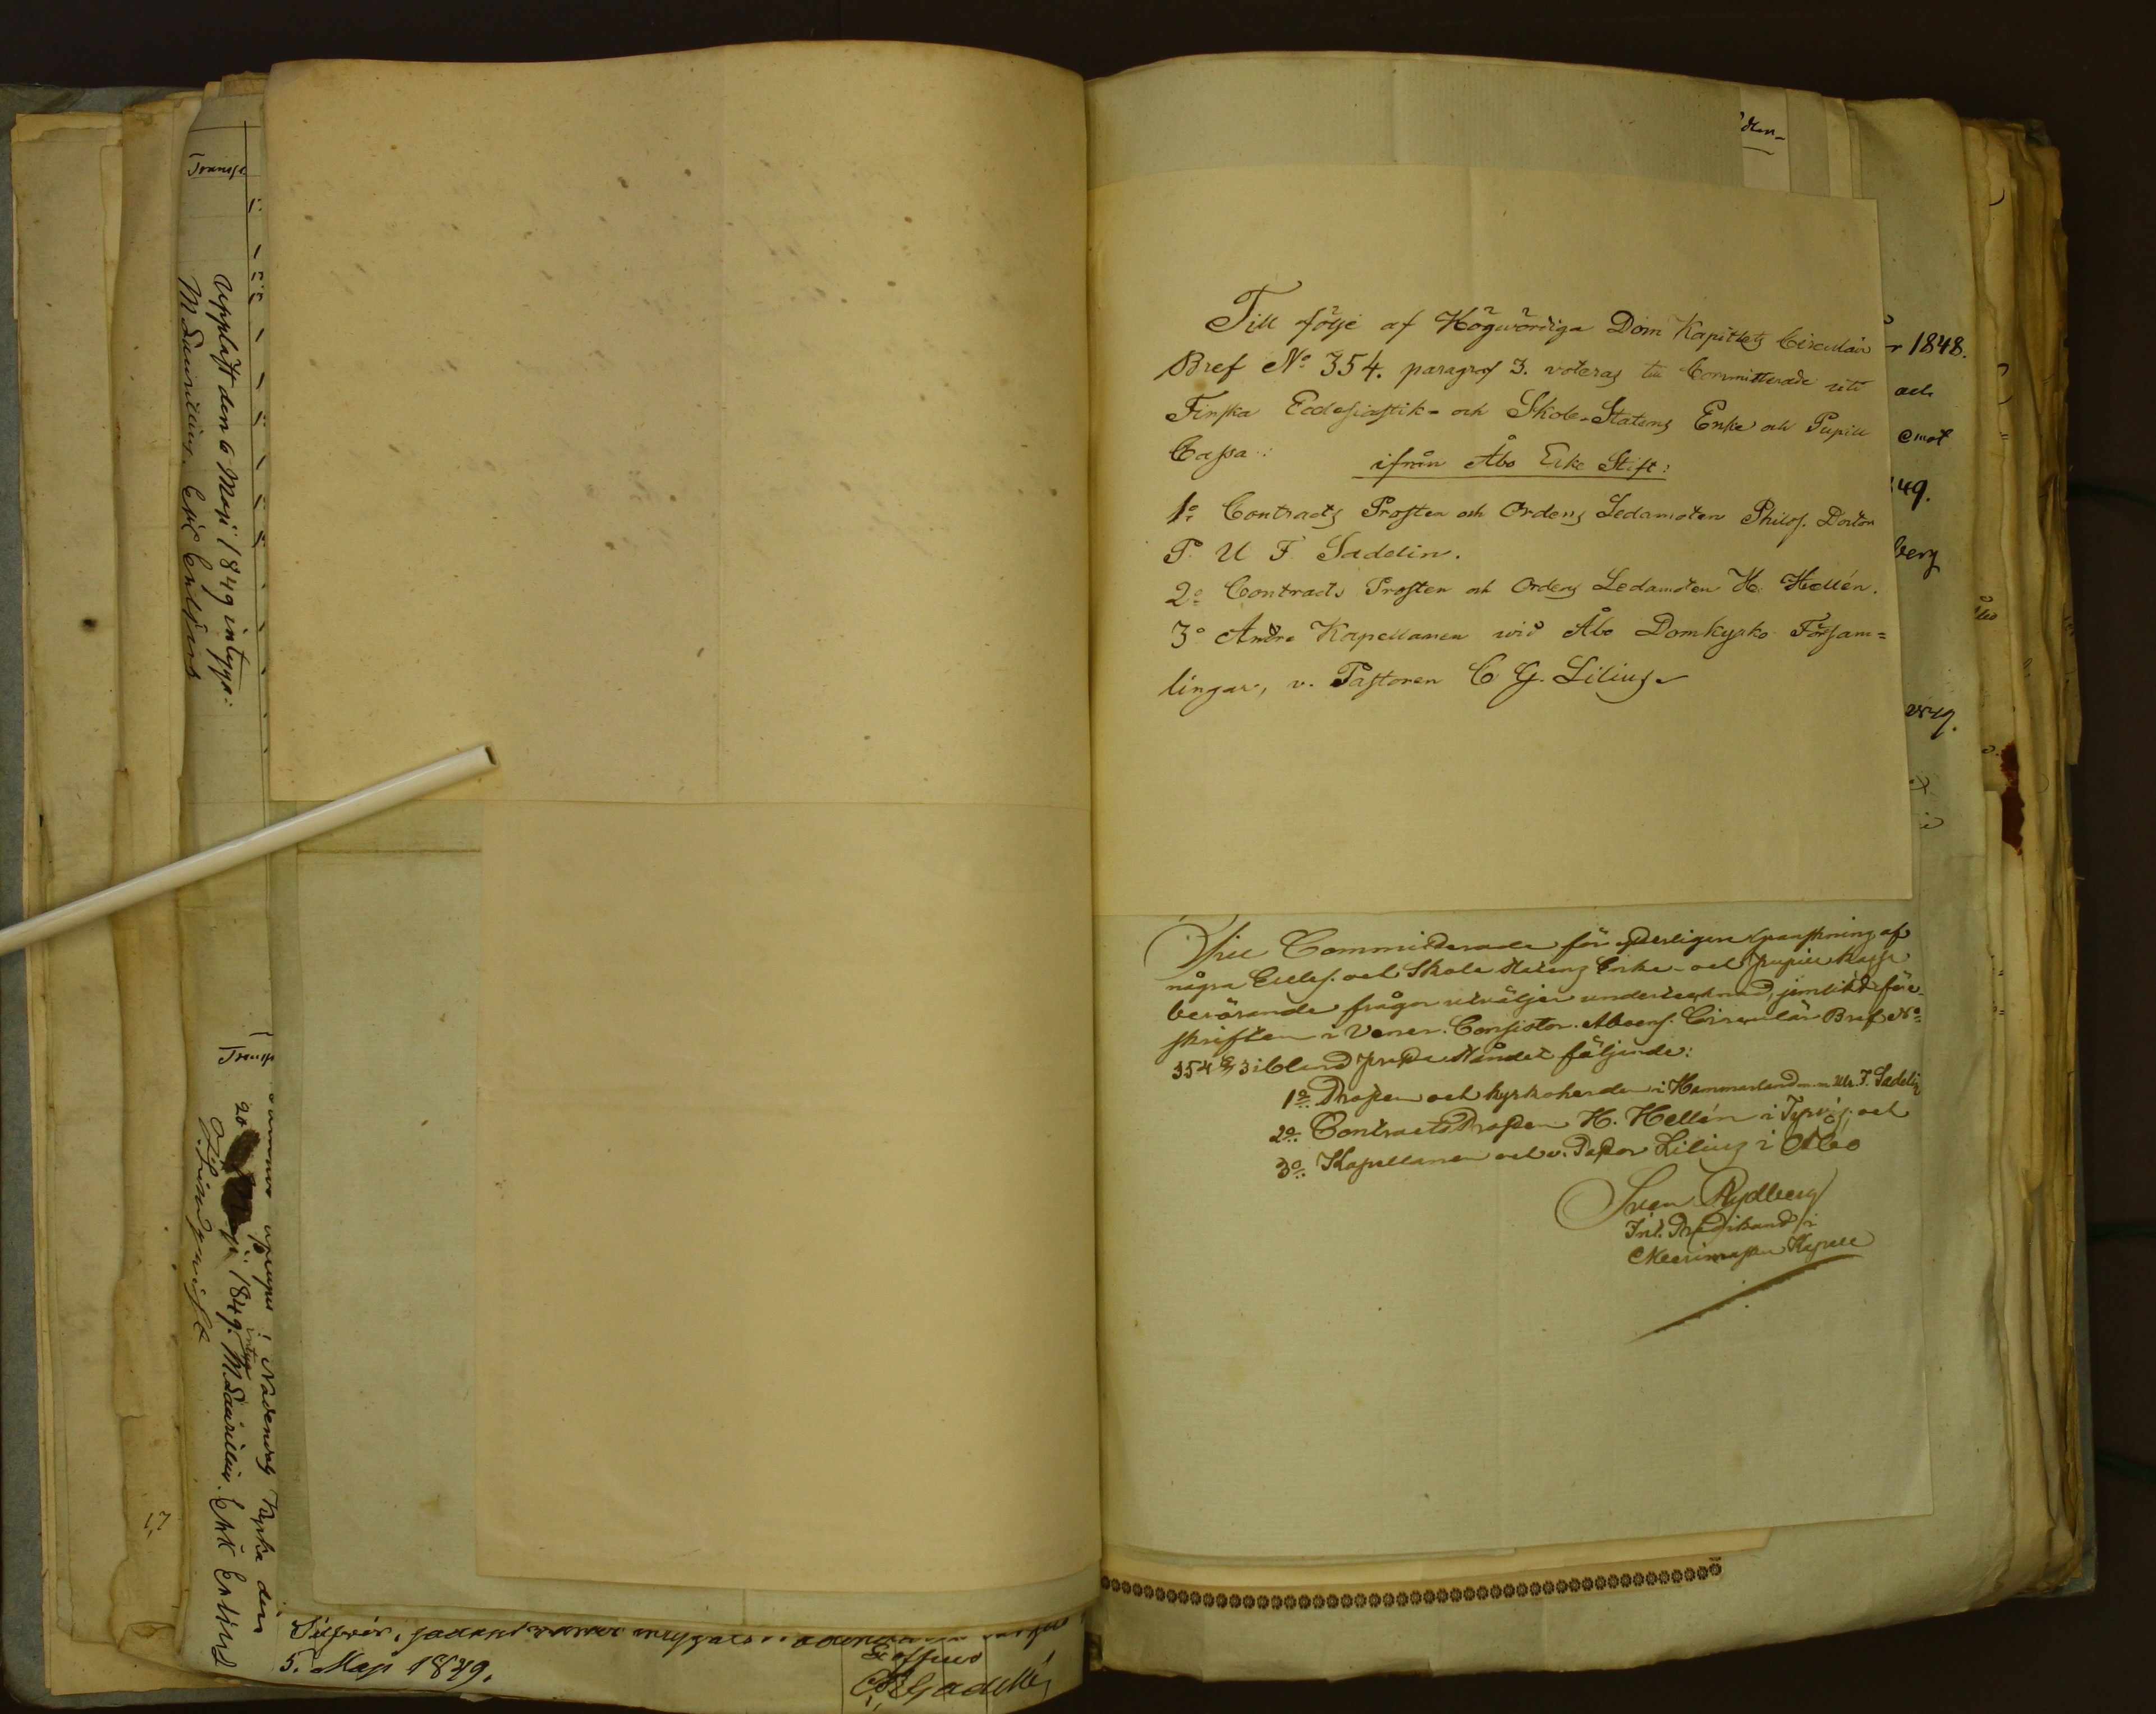 Transp.
Uppläst den 6 Maji 1849 intyga:
M Laurellius. Eric Enlund
Transp
uppläst i Nådendals Kyrka den
20 Maji 1849. intyga M Laurellius. Erik Enlund
5. Maji 1849.
Ex officio
Till följe af Högwördiga Dom Kapitlets Circulair
Bref No 354. paragraf 3. voteras till Committerade uti
Finska Ecclesiastik- och Skole-Statens Enke och Pupill
Cassa:
ifrån Åbo Erke Stift:
1o Contracts Prosten och Ordens Ledamoten Philos. Doctor
P. U F Sadelin.
2o Contracts Prosten och Ordens Ledamoten H. Hellén.
3o Andra Kapellanen wid Åbo Domkyrko Församlingar,
v. Pastoren C G. Lilius
Till Committerade för ytterligare granskning af
några Eccles. och Skole Statens Enke- och Pupill Kassa
berörande frågor utväljer undertecknad, jemlikt föreskriften
i Vener. Consistor. Aboens. Circulär Bref No
354 § 3 ibland Preste Ståndet följande:
1o. Prosten och kyrkoherden i Hammarland m.m. Ulr. F. Sadelin
2o. Contracts Prosten H. Hellén i Tyrvis, och
3o. Kapellanen och v. Pastor Lilius i Åbo
Sven Rydberg
Ord. Predikand i
Merimasku Kapell
1848.
och
emot
49.
berg